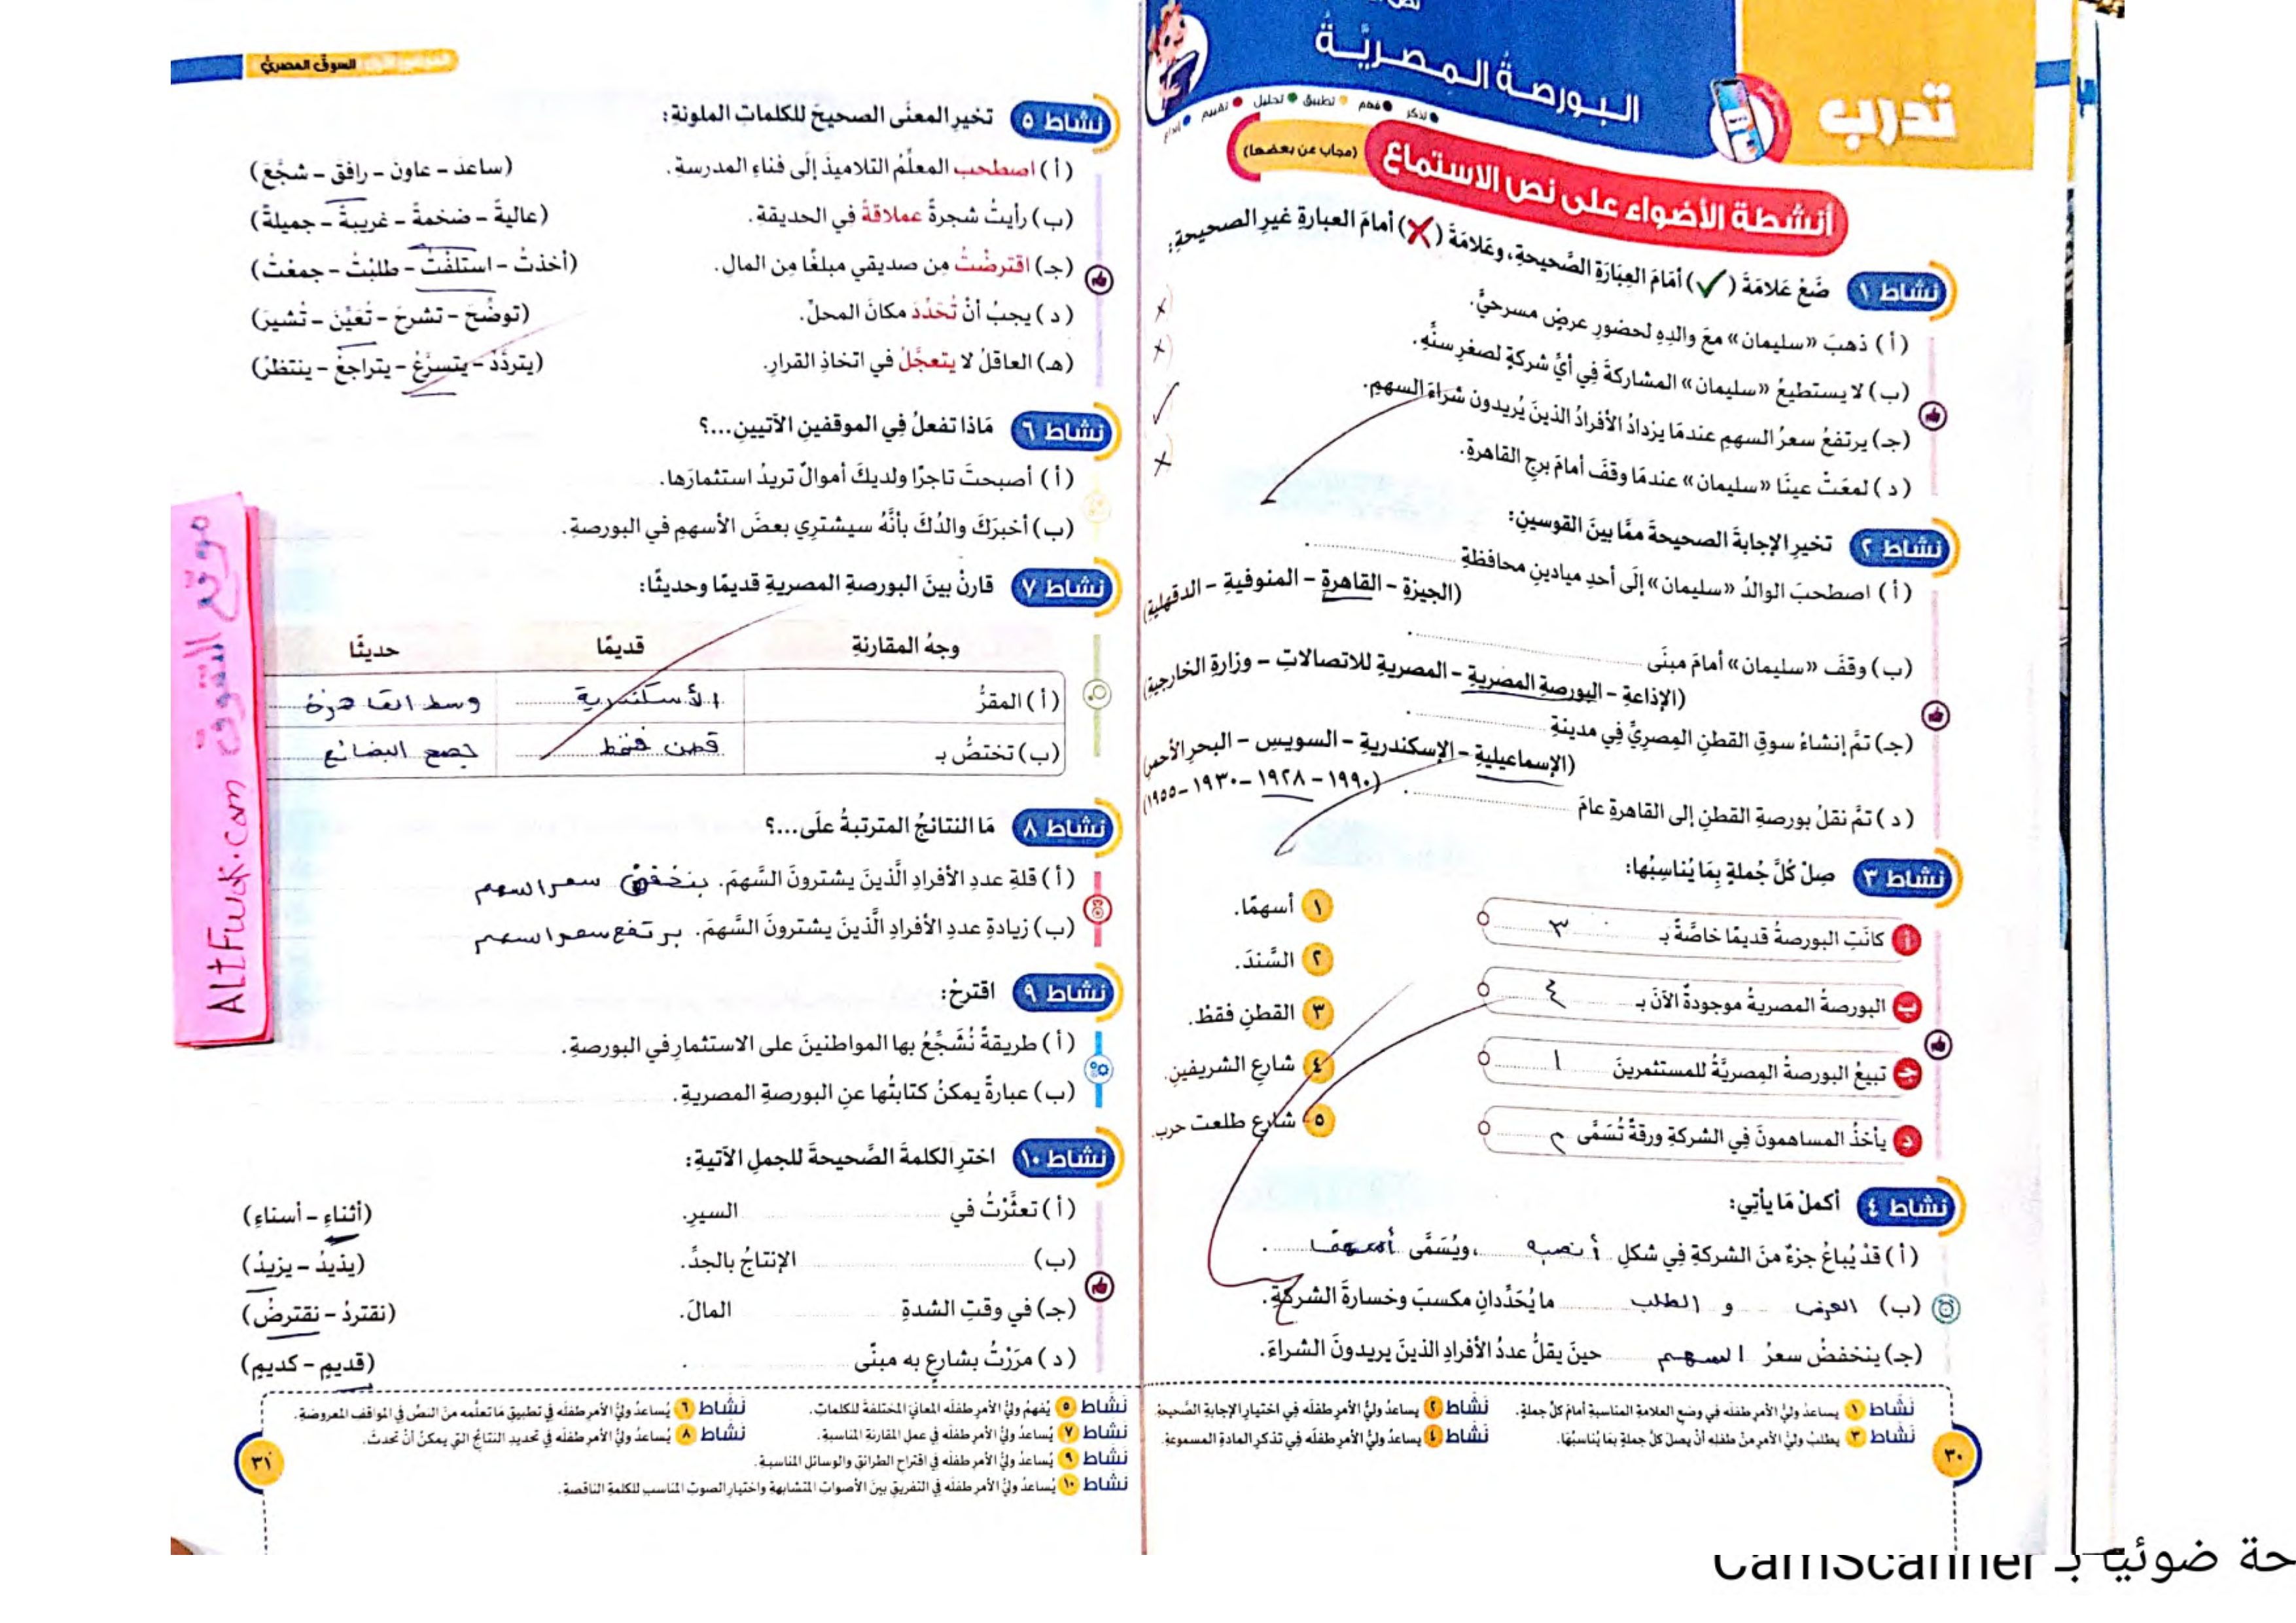 تدرب
البورصة المصريَّة
تذكر • فهم • تطبيق • تحليل • تقييم • إبداع
أنشطة الأضواء على نص الاستماع (مجاب عن بعضها)
نشاط ١ ضَعْ عَلامَةَ (✓) أمَامَ العِبَارَةِ الصَّحيحةِ، وعَلامَةَ (✗) أمامَ العبارةِ غيرِ الصحيحةِ:
(أ) ذهبَ «سليمان» معَ والدِهِ لحضورِ عرضٍ مسرحيٍّ. ×
(ب) لا يستطيعُ «سليمان» المشاركةَ فِي أيِّ شركةٍ لصغرِ سنِّهِ. ×
(جـ) يرتفعُ سعرُ السهمِ عندمَا يزدادُ الأفرادُ الذينَ يُريدون شراءَ السهمِ. ✓
(د) لمعَتْ عينَا «سليمان» عندمَا وقفَ أمامَ برجِ القاهرةِ. ×
نشاط ٢ تخيرِ الإجابةَ الصحيحةَ ممَّا بينَ القوسينِ:
(أ) اصطحبَ الوالدُ «سليمان» إلَى أحدِ ميادينِ محافظةِ
(الجيزةِ - القاهرةِ - المنوفيةِ - الدقهليةِ)
(ب) وقفَ «سليمان» أمامَ مبنَى
(الإذاعةِ - البورصةِ المصريةِ - المصريةِ للاتصالاتِ - وزارةِ الخارجيةِ)
(جـ) تمَّ إنشاءُ سوقِ القطنِ المِصريِّ فِي مدينةِ
(الإسماعيليةِ - الإسكندريةِ - السويسِ - البحرِ الأحمرِ)
(د) تمَّ نقلُ بورصةِ القطنِ إلى القاهرةِ عامَ
(١٩٩٠ - ١٩٢٨ - ١٩٣٠ - ١٩٥٥)
نشاط ٣ صِلْ كُلَّ جُملةٍ بِمَا يُناسِبُها:
أ كانَتِ البورصةُ قديمًا خاصَّةً بـ ٣
ب البورصةُ المصريةُ موجودةٌ الآنَ بـ ٤
جـ تبيعُ البورصةُ المِصريَّةُ للمستثمرينَ ١
د يأخذُ المساهمونَ فِي الشركةِ ورقةً تُسَمَّى ٢
١ أسهمًا.
٢ السَّندَ.
٣ القطنِ فقطْ.
٤ شارعِ الشريفينِ.
٥ شارعِ طلعت حرب.
نشاط ٤ أكملْ مَا يأتِي:
(أ) قدْ يُباعُ جزءٌ منَ الشركةِ فِي شكلِ أنصبه، ويُسَمَّى أسهمًا.
(ب) العرض و الطلب ما يُحَدِّدانِ مكسبَ وخسارةَ الشركةِ.
(جـ) ينخفضُ سعرُ السهم حينَ يقلُّ عددُ الأفرادِ الذينَ يريدونَ الشراءَ.
نشاط ١ يساعدُ وليُّ الأمرِ طفلَه في وضعِ العلامةِ المناسبةِ أمامَ كلِّ جملةٍ.
نشاط ٢ يساعدُ وليُّ الأمرِ طفلَه في اختيارِ الإجابةِ الصَّحيحةِ
نشاط ٣ يطلبُ وليُّ الأمرِ منْ طفلِه أنْ يصلَ كلَّ جملةٍ بمَا يُناسبُها.
نشاط ٤ يساعدُ وليُّ الأمرِ طفلَه في تذكرِ المادةِ المسموعةِ.
٣٠
السوق المصريُّ
نشاط ٥ تخيرِ المعنَى الصحيحَ للكلماتِ الملونةِ:
(أ) اصطحب المعلِّمُ التلاميذَ إلَى فناءِ المدرسةِ. (ساعدَ - عاونَ - رافقَ - شجَّعَ)
(ب) رأيتُ شجرةً عملاقةً في الحديقةِ. (عاليةً - ضخمةً - غريبةً - جميلةً)
(جـ) اقترضْتُ مِن صديقي مبلغًا مِن المالِ. (أخذتُ - استلفْتُ - طلبْتُ - جمعْتُ)
(د) يجبُ أنْ تُحَدِّدَ مكانَ المحلِّ. (توضِّحَ - تشرحَ - تُعيِّنَ - تُشيرَ)
(هـ) العاقلُ لا يتعجَّلُ في اتخاذِ القرارِ. (يتردَّدُ - يتسرَّعُ - يتراجعُ - ينتظرُ)
نشاط ٦ مَاذا تفعلُ فِي الموقفينِ الآتيينِ...؟
(أ) أصبحتَ تاجرًا ولديكَ أموالٌ تريدُ استثمارَها.
(ب) أخبرَكَ والدُكَ بأنَّهُ سيشترِي بعضَ الأسهمِ في البورصةِ.
نشاط ٧ قارنْ بينَ البورصةِ المصريةِ قديمًا وحديثًا:
وجهُ المقارنةِ قديمًا حديثًا
(أ) المقرُّ الأسكندرية وسط القاهرة
(ب) تختصُّ بـ قطن فقط جميع البضائع
نشاط ٨ مَا النتائجُ المترتبةُ علَى...؟
(أ) قلةِ عددِ الأفرادِ الَّذينَ يشترونَ السَّهمَ. ينخفض سعر السهم
(ب) زيادةِ عددِ الأفرادِ الَّذينَ يشترونَ السَّهمَ. يرتفع سعر السهم
نشاط ٩ اقترحْ:
(أ) طريقةً نُشَجِّعُ بها المواطنينَ على الاستثمارِ في البورصةِ.
(ب) عبارةً يمكنُ كتابتُها عنِ البورصةِ المصريةِ.
نشاط ١٠ اخترِ الكلمةَ الصَّحيحةَ للجملِ الآتيةِ:
(أ) تعثَّرْتُ في السيرِ. (أثناءِ - أسناءِ)
(ب) الإنتاجُ بالجدِّ. (يذيدُ - يزيدُ)
(جـ) في وقتِ الشدةِ المالَ. (نقتردُ - نقترضُ)
(د) مرَرْتُ بشارعٍ به مبنًى . (قديمٍ - كديمٍ)
نشاط ٥ يُفهمُ وليُّ الأمرِ طفلَه المعانيَ المختلفةَ للكلماتِ.
نشاط ٦ يُساعدُ وليُّ الأمرِ طفلَه في تطبيقِ مَا تعلَّمه منَ النصِّ في المواقفِ المعروضةِ.
نشاط ٧ يُساعدُ وليُّ الأمرِ طفلَه في عملِ المقارنةِ المناسبةِ.
نشاط ٨ يُساعدُ وليُّ الأمرِ طفلَه في تحديدِ النتائجِ التي يمكنُ أنْ تحدثَ.
نشاط ٩ يُساعدُ وليُّ الأمرِ طفلَه في اقتراحِ الطرائقِ والوسائلِ المناسبةِ.
نشاط ١٠ يُساعدُ وليُّ الأمرِ طفلَه في التفريقِ بينَ الأصواتِ المتشابهةِ واختيارِ الصوتِ المناسبِ للكلمةِ الناقصةِ.
٣١
موقع التفوق ALtFwok.com
حة ضوئيا بـ CamScanner